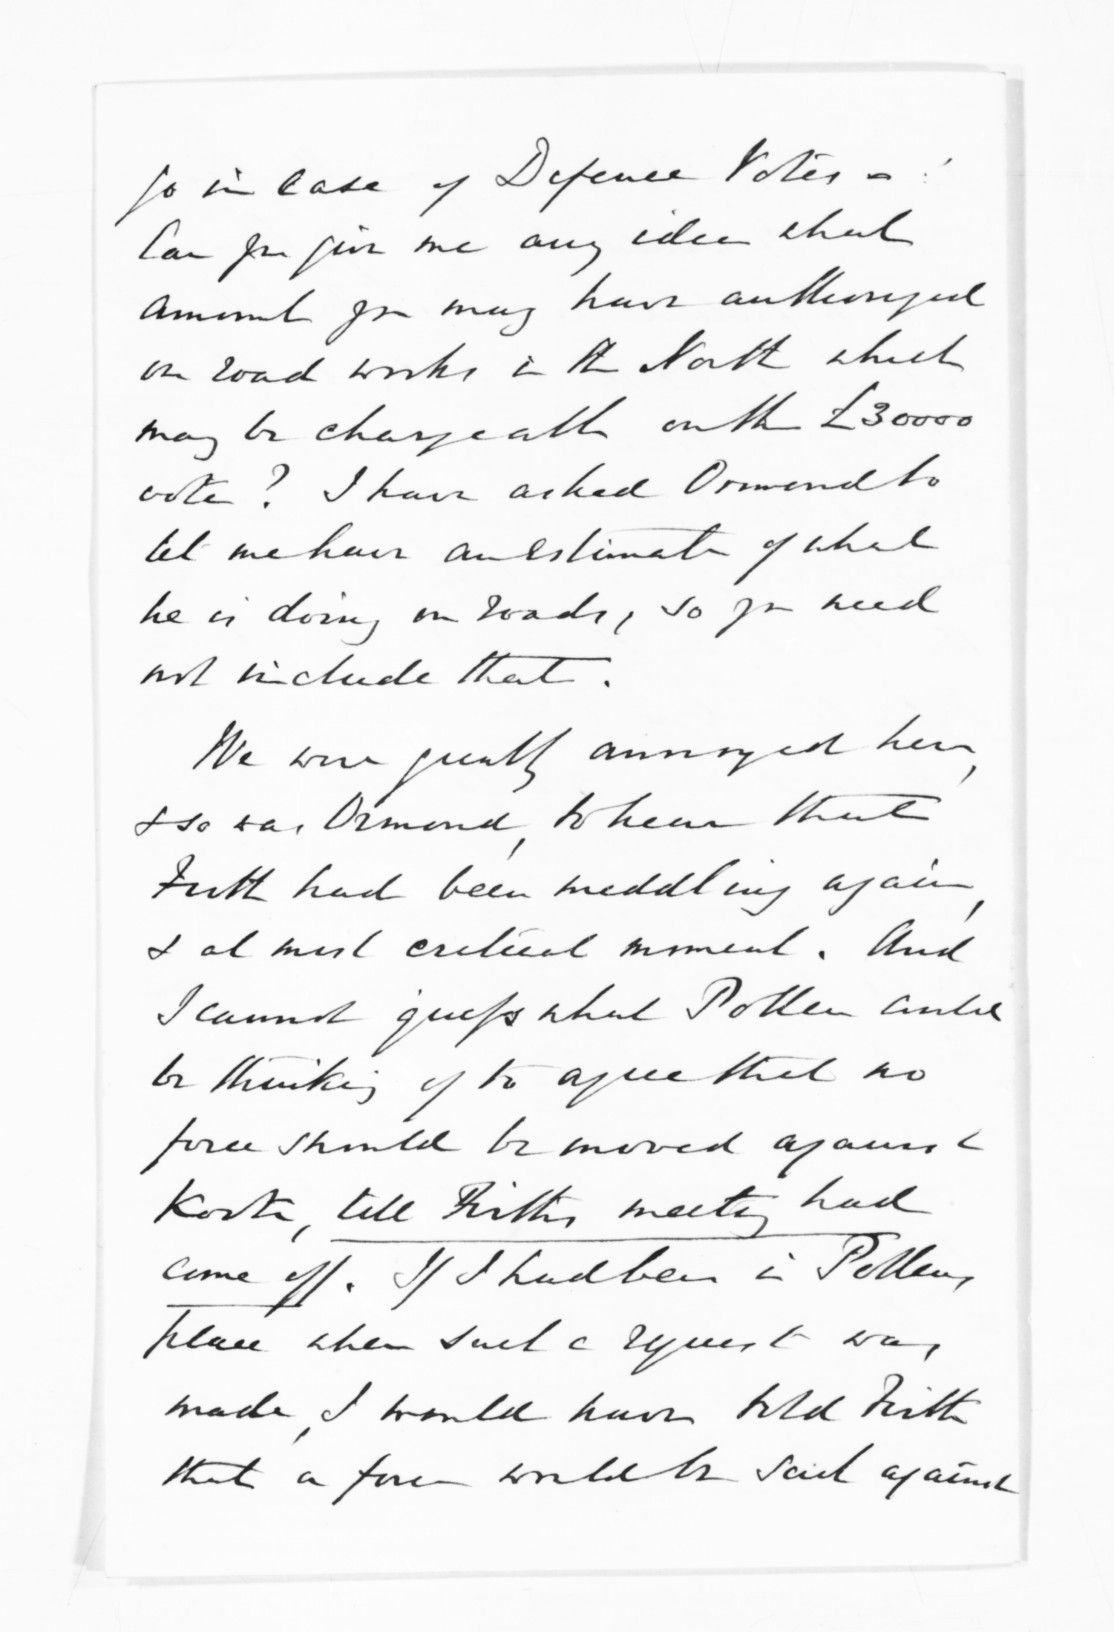 so in case of Defence Votes -
Can you give me any idea what
amount you may have authorized
on road works in the North which
may be chargeable on the £30000
vote? I have asked Ormond to
let me have an estimate of what
he is doing on roads, so you need
not include that.
We were greatly annoyed here,
& so was Ormond, to hear that
Firth had been meddling again,
& at most critical moment. And
I cannot guess what Pollen could
be thinking of to agree that no
force should be moved against
Kooti, till Firths meeting had
come off. If I had been in Pollens
place when such a request was
made, I would have told Firth
that a force would be sent against